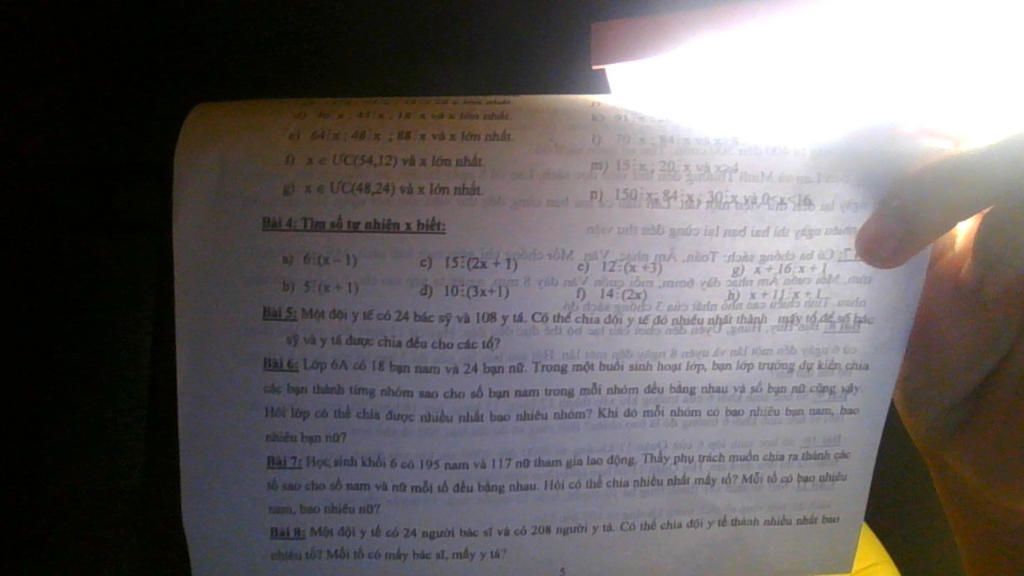 e) 64⋮x ; 48⋮x ; 88⋮x và x lớn nhất.
f) x ∈ ƯC(54,12) và x lớn nhất.
g) x ∈ ƯC(48,24) và x lớn nhất.
m) 15⋮x ; 20⋮x và x>4
n) 150⋮x; 84⋮x ; 30⋮x và 0<x<16.
Bài 4: Tìm số tự nhiên x biết:
a) 6⋮(x – 1) c) 15⋮(2x + 1) e) 12⋮(x +3) g) x + 16⋮x + 1
b) 5⋮(x + 1) d) 10⋮(3x+1) f) 14⋮(2x) h) x + 11⋮x + 1
Bài 5: Một đội y tế có 24 bác sỹ và 108 y tá. Có thể chia đội y tế đó nhiều nhất thành mấy tổ để số bác
sỹ và y tá được chia đều cho các tổ?
Bài 6: Lớp 6A có 18 bạn nam và 24 bạn nữ. Trong một buổi sinh hoạt lớp, bạn lớp trưởng dự kiến chia
các bạn thành từng nhóm sao cho số bạn nam trong mỗi nhóm đều bằng nhau và số bạn nữ cũng vậy.
Hỏi lớp có thể chia được nhiều nhất bao nhiêu nhóm? Khi đó mỗi nhóm có bao nhiêu bạn nam, bao
nhiêu bạn nữ?
Bài 7: Học sinh khối 6 có 195 nam và 117 nữ tham gia lao động. Thầy phụ trách muốn chia ra thành các
tổ sao cho số nam và nữ mỗi tổ đều bằng nhau. Hỏi có thể chia nhiều nhất mấy tổ? Mỗi tổ có bao nhiêu
nam, bao nhiêu nữ?
Bài 8: Một đội y tế có 24 người bác sĩ và có 208 người y tá. Có thể chia đội y tế thành nhiều nhất bao
nhiêu tổ? Mỗi tổ có mấy bác sĩ, mấy y tá?
5